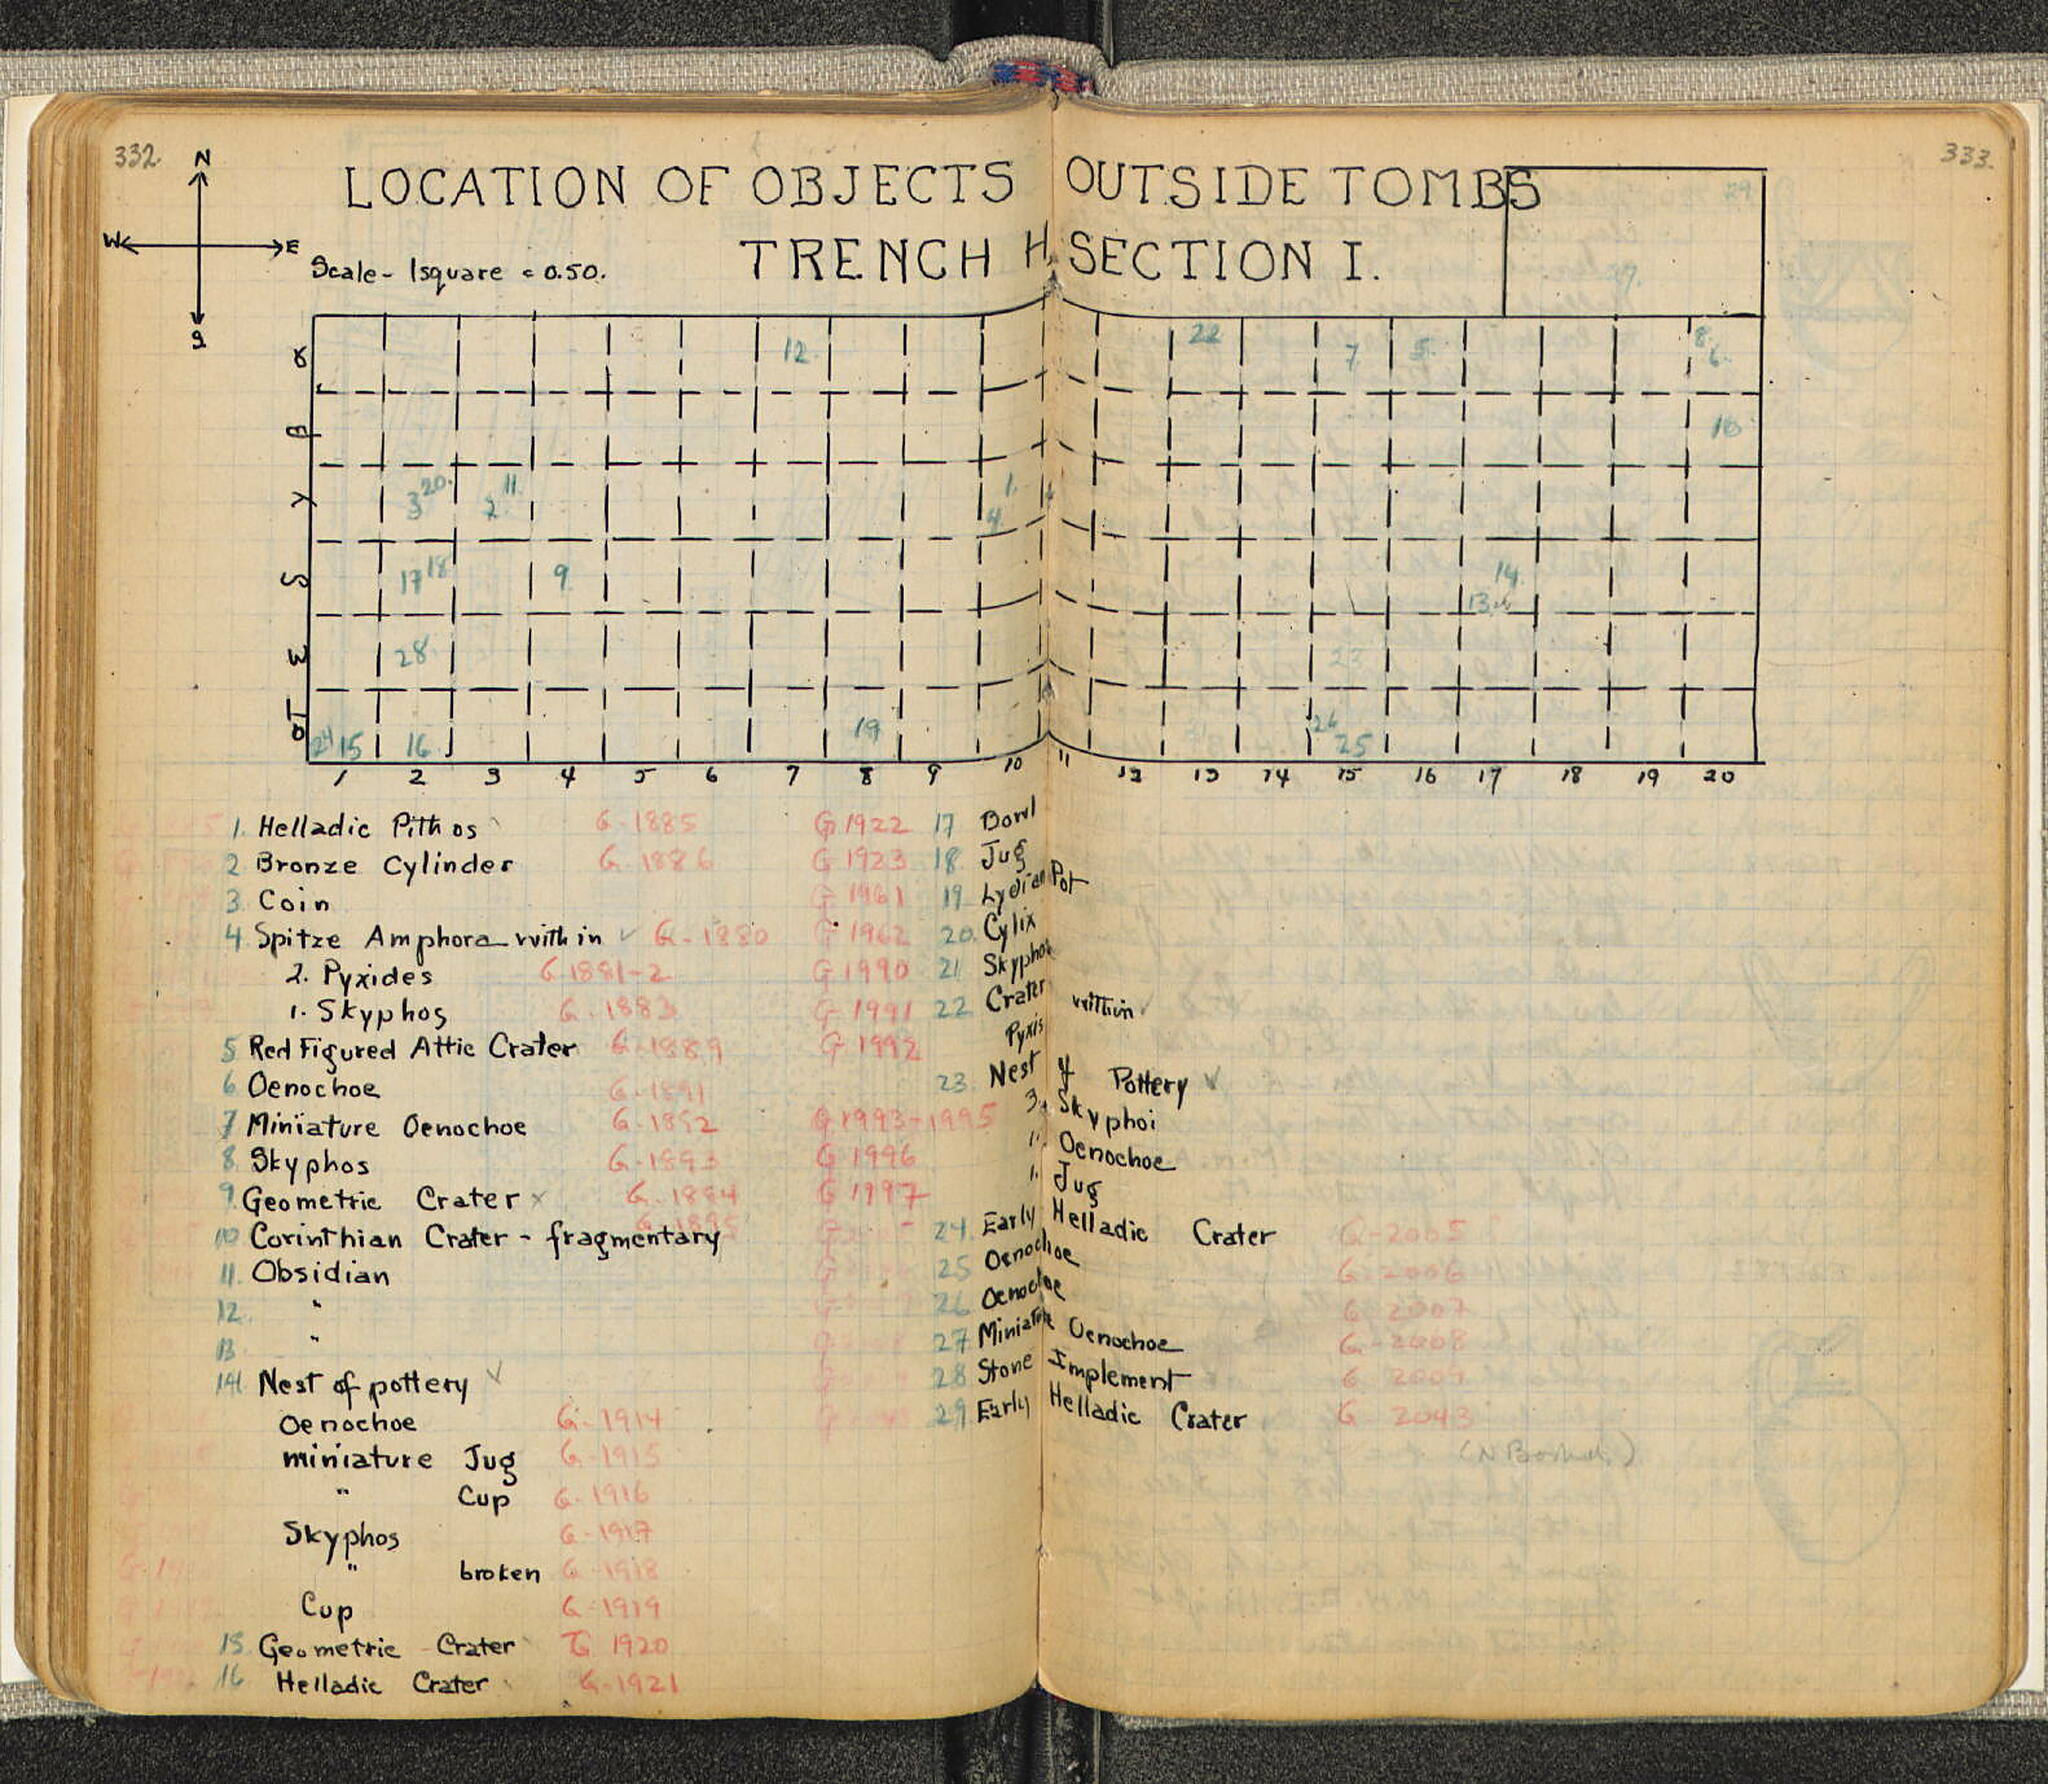 332.
333.
N
W E
S
LOCATION OF OBJECTS OUTSIDE TOMBS
TRENCH H, SECTION I.
Scale - 1 square = 0.50.
29
27.
α 12. 22 7 5. 8. 6.
β 10
γ 3 20. 2 11. 1. 4
δ 17 18 9 14 13
ε 28 23
στ 24 15 16 19 26 25
1 2 3 4 5 6 7 8 9 10 11 12 13 14 15 16 17 18 19 20
1. Helladic Pithos G-1885
2 Bronze Cylinder G-1886
3. Coin
4 Spitze Amphora within ✓ G-1880
2. Pyxides G 1881-2
1. Skyphos G-1883
5 Red Figured Attic Crater G-1889
6 Oenochoe G-1891
7 Miniature Oenochoe G-1892
8. Skyphos G-1893
9. Geometric Crater × G-1884
10 Corinthian Crater - fragmentary G-1895
11. Obsidian
12. "
13 "
14. Nest of pottery ✓
Oenochoe G-1914
miniature Jug G-1915
" Cup G-1916
Skyphos G-1917
" broken G-1918
Cup G-1919
15 Geometric Crater G 1920
16 Helladic Crater G-1921
G 1922 17 Bowl
G 1923 18. Jug
G 1961 19 Lydian Pot
G 1962 20. Cylix
G 1990 21 Skyphos
G 1991 22 Crater within ✓
G 1992 Pyxis
23. Nest of Pottery ✓
G 1993-1995 3. Skyphoi
G 1996 1. Oenochoe
G 1997 1. Jug
24. Early Helladic Crater G-2005
25 Oenochoe G-2006
26 Oenochoe G 2007
27 Miniature Oenochoe G-2008
28 Stone Implement G 2009
29 Early Helladic Crater G 2043